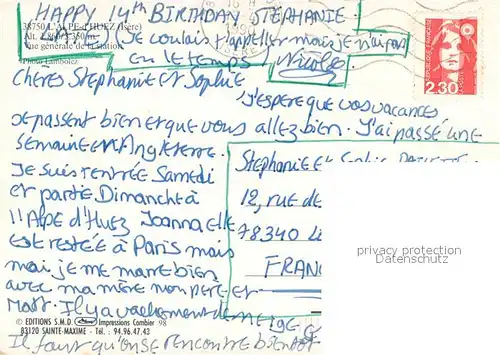 HAPPY 14th BIRTHDAY STEPHANIE
38750 L'ALPE-d'HUEZ (Isère)
Alt. 1860/3.350 m
Vue générale de la Station
Photo Lamboley
Je voulais t'appeller mais je n'ai pas
eu le temps Nicole
2,30
chères Stephanie et Sophie
J'espere que vos vacances
se passent bien et que vous allez bien. J'ai passé une
semaine en Angleterre.
Je suis rentrée Samedi
et partie Dimanche à
l'Alpe d'Huez Joanna elle
est restée à Paris mais
moi je me marre bien
avec ma mère mon père et
Matt. Il y a vachement de neige
Il faut qu'on se rencontre bientôt
Stephanie et Sophie
12, rue de
78340
FRANC
privacy protection
Datenschutz
© EDITIONS S.M.D. Impressions Combier 98
83120 SAINTE-MAXIME - Tél. : 94.96.47.43